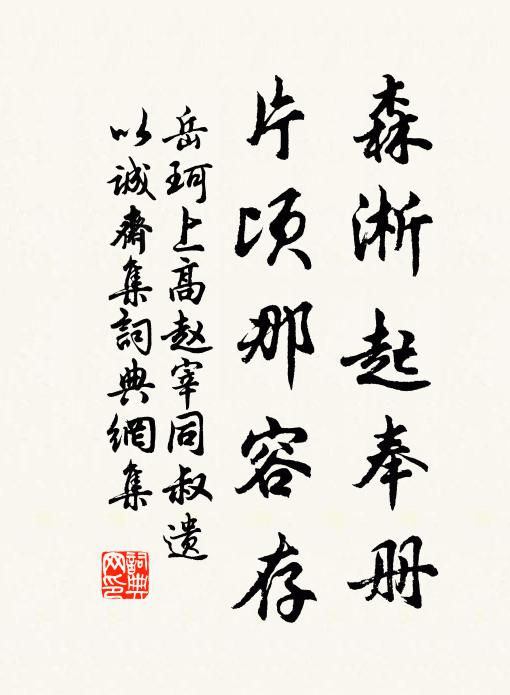 森淅起奉册
片顷那容存
岳珂上高赵宰同叔遗
以诚齋集詞典網集
詞典网印